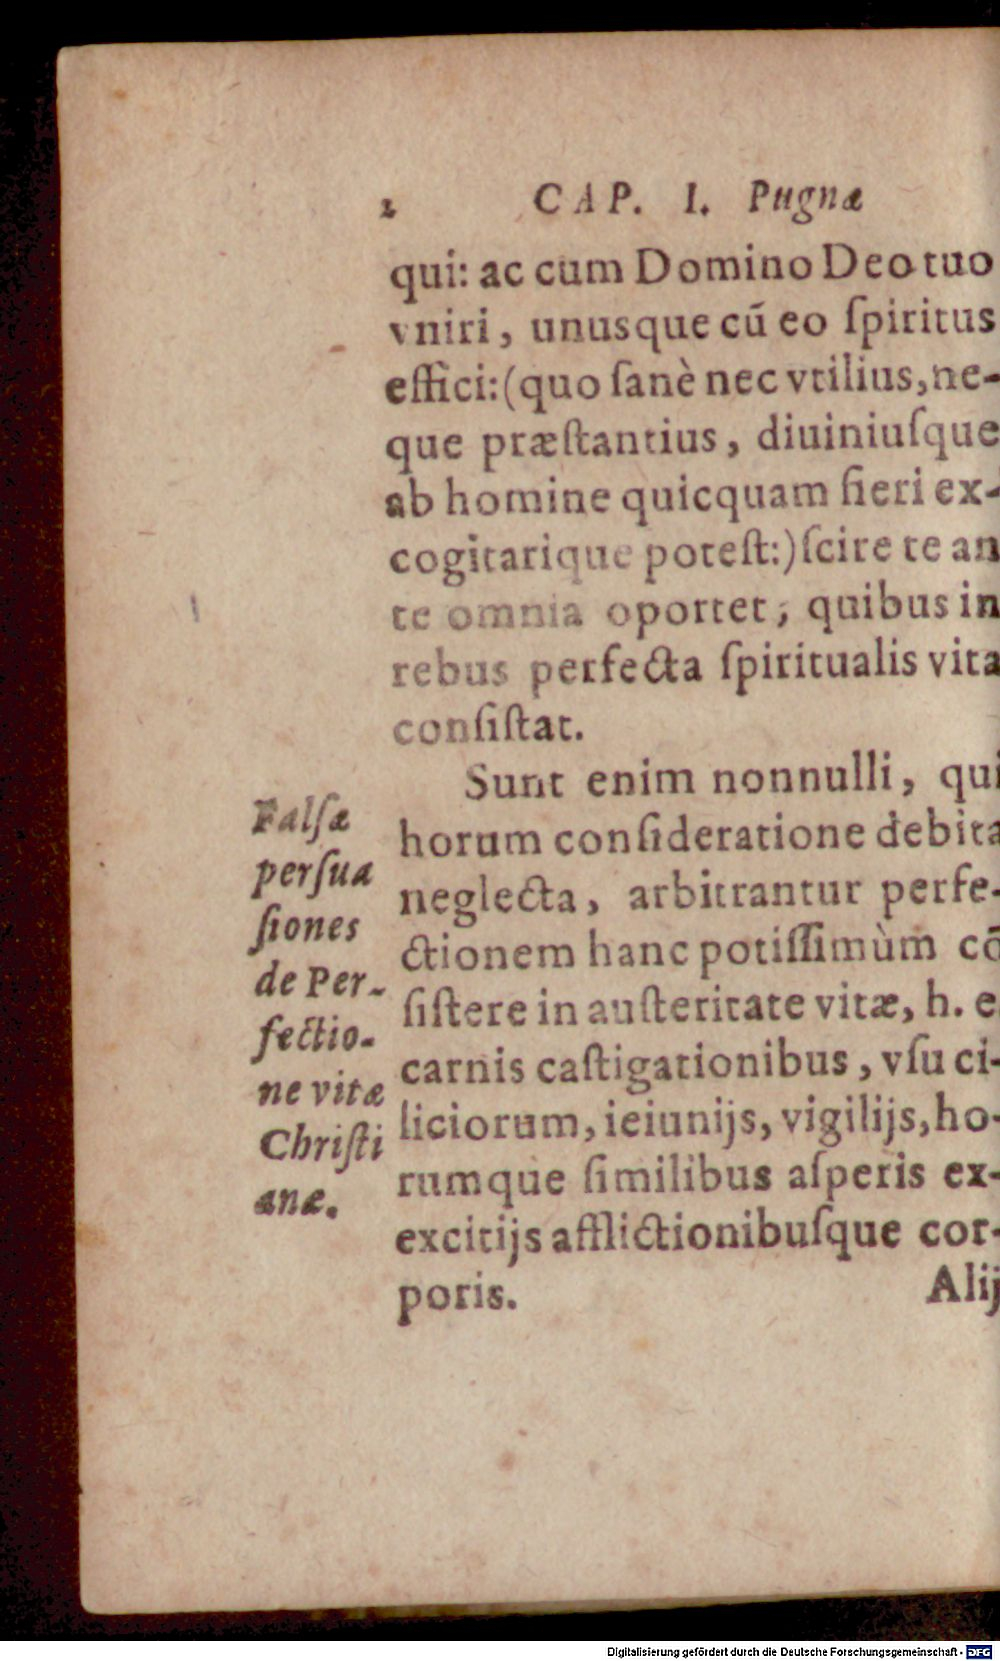 2 CAP. I. Pugnæ
qui: ac cum Domino Deo tuo
vniri, unusque cū eo ſpiritus
effici:(quo ſanè nec vtilius, ne-
que præſtantius, diuiniuſque
ab homine quicquam fieri ex-
cogitarique poteſt:) ſcire te an
te omnia oportet, quibus in
rebus perfecta ſpiritualis vita
conſiſtat.
Sunt enim nonnulli, qui
horum conſideratione debita
neglecta, arbitrantur perfe-
ctionem hanc potiſſimùm cō
ſiſtere in auſteritate vitæ, h. e
carnis caſtigationibus, vſu ci-
liciorum, ieiunijs, vigilijs, ho-
rumque ſimilibus aſperis ex-
excitijs afflictionibuſque cor-
poris.
Alij
Falſæ
perſua
ſiones
de Per-
fectio-
ne vitæ
Chriſti
anæ.
Digitalisierung gefördert durch die Deutsche Forschungsgemeinschaft - DFG